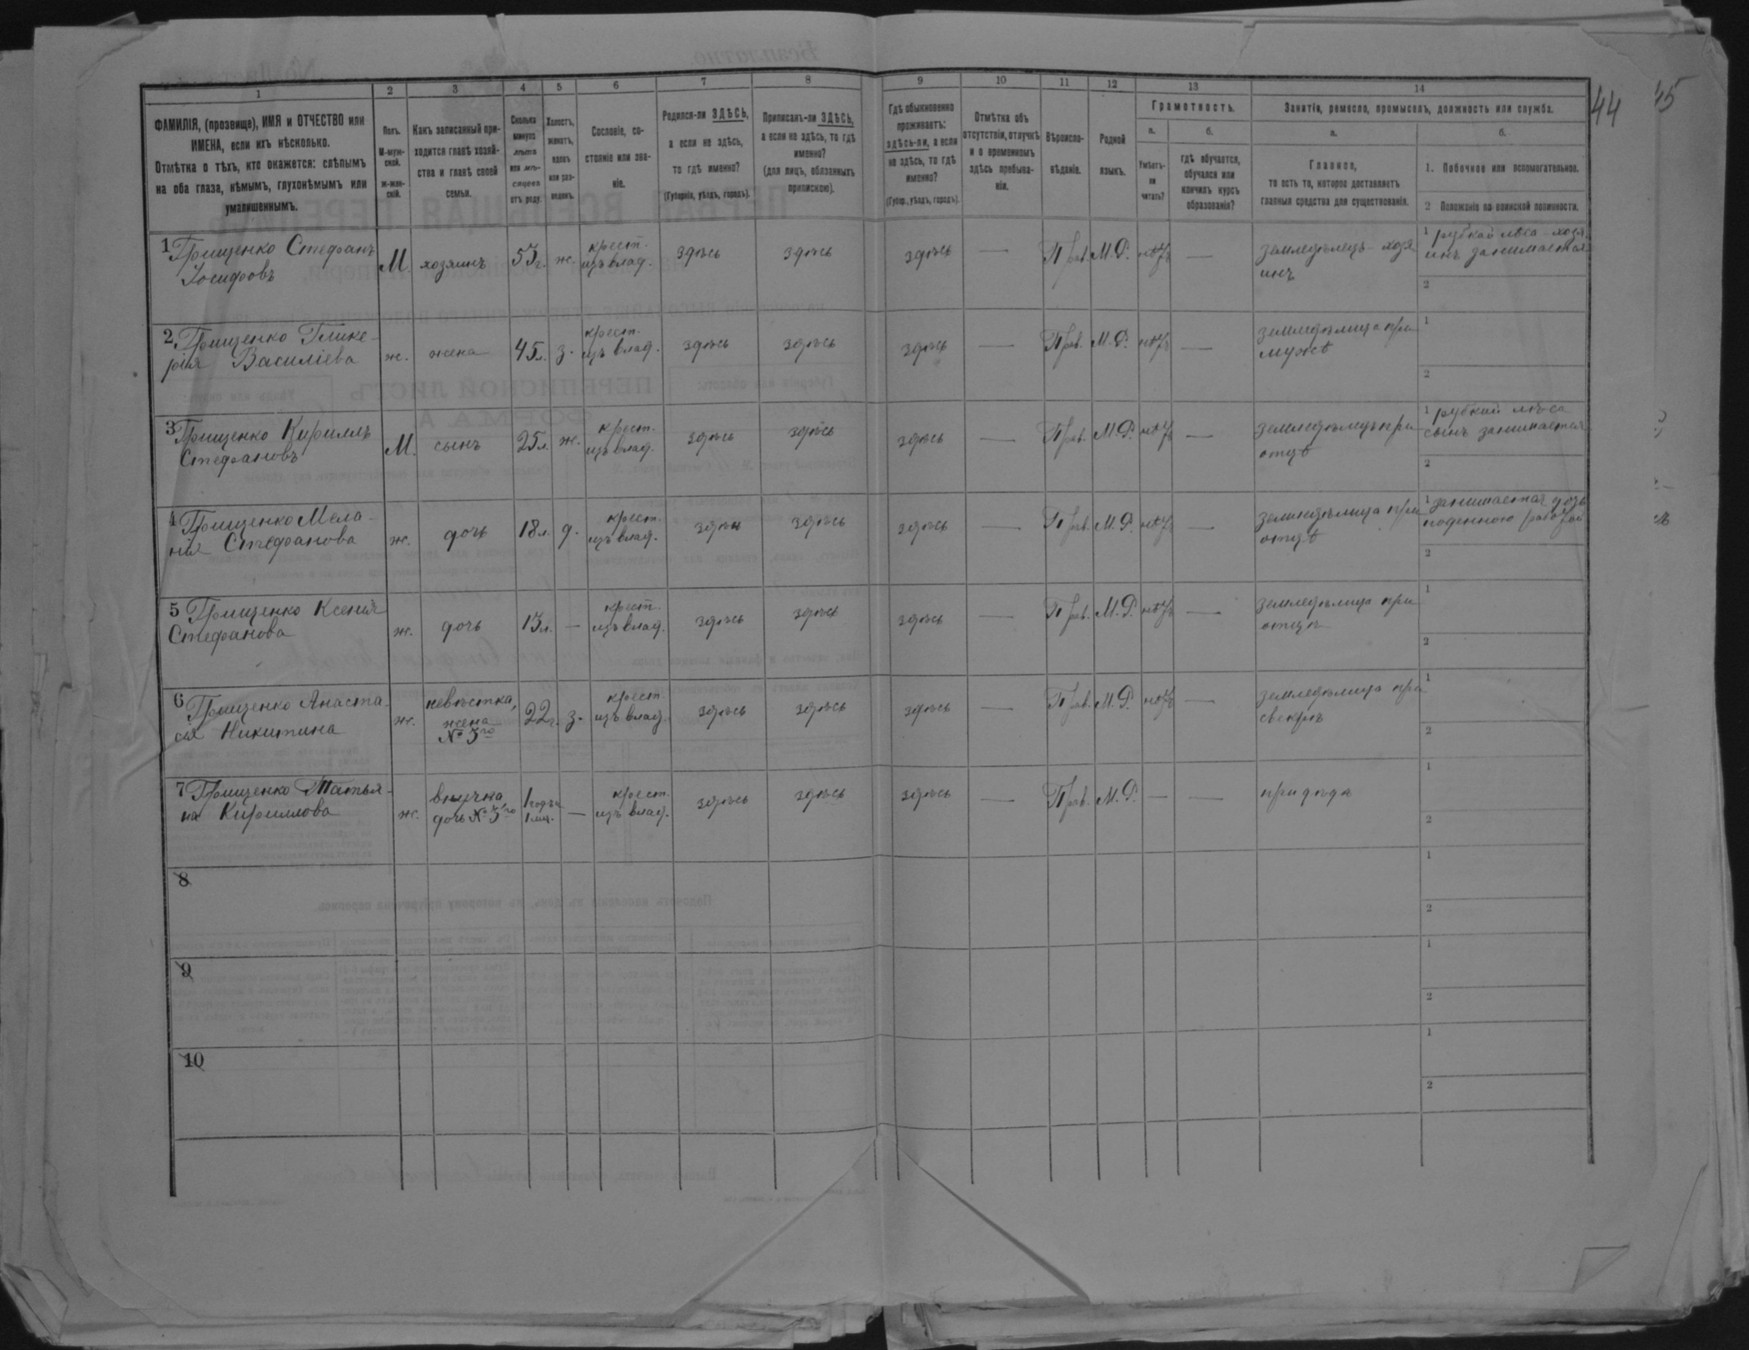 44 45
1 2 3 4 5 6 7 8 9 10 11 12 13 14
ФАМИЛІЯ, (прозвище), ИМЯ и ОТЧЕСТВО или
ИМЕНА, если ихъ нѣсколько.
Отмѣтка о тѣхъ, кто окажется: слѣпымъ
на оба глаза, нѣмымъ, глухонѣмымъ или
умалишеннымъ.
Полъ.
М-муж-
ской.
ж-жен-
скій.
Какъ записанный при-
ходится главѣ хозяй-
ства и главѣ своей
семьи.
Сколько
минуло
лѣтъ
или мѣ-
сяцевъ
отъ роду.
Холостъ,
женатъ,
вдовъ
или раз-
веденъ.
Сословіе, со-
стояніе или зва-
ніе.
Родился-ли ЗДѢСЬ,
а если не здѣсь,
то гдѣ именно?
(Губернія, уѣздъ, городъ).
Приписанъ-ли ЗДѢСЬ,
а если не здѣсь, то гдѣ
именно?
(для лицъ, обязанныхъ
припискою).
Гдѣ обыкновенно
проживаетъ:
здѣсь-ли, а если
не здѣсь, то гдѣ
именно?
(Губер., уѣздъ, городъ).
Отмѣтка объ
отсутствіи, отлучкѣ
и о временномъ
здѣсь пребыва-
ніи.
Вѣроиспо-
вѣданіе.
Родной
языкъ.
Грамотность.
а.
Умѣетъ-
ли
читать?
б.
гдѣ обучается,
обучался или
кончилъ курсъ
образованія?
Занятіе, ремесло, промыселъ, должность или служба.
а.
Главное,
то есть то, которое доставляетъ
главныя средства для существованія.
б.
1. Побочное или вспомогательное.
2 Положеніе по воинской повинности.
1 Грищенко Стефанъ
Іосифовъ
М. хозяинъ 53г. ж. крест.
изъ влад. здѣсь здѣсь здѣсь — Прав. М.Р. нѣтъ — земледѣлецъ-хозя
инъ
1 рубкой лѣса - хозя
инъ занимается
2
2 Грищенко Глике-
рія Василіева
ж. жена 45л. з. крест.
изъ влад. здѣсь здѣсь здѣсь — Прав. М.Р. нѣтъ — земледѣлица при
мужѣ
1
2
3 Грищенко Кириллъ
Стефановъ
М. сынъ 25л. ж. крест.
изъ влад. здѣсь здѣсь здѣсь — Прав. М.Р. нѣтъ — земледѣлецъ при
отцѣ
1 рубкий лѣса
сынъ занимается
2
4 Грищенко Мела-
нія Стефанова
ж. дочь 18л. д. крест.
изъ влад. здѣсь здѣсь здѣсь — Прав. М.Р. нѣтъ — земледѣлица при
отцѣ
1 занимается дочь
поденною работой
2
5 Грищенко Ксенія
Стефанова
ж. дочь 13л. — крест.
изъ влад. здѣсь здѣсь здѣсь — Прав. М.Р. нѣтъ — земледѣлица при
отцѣ
1
2
6 Грищенко Анаста-
сія Никитина
ж. невѣстка,
жена
№ 3го 22г. з. крест.
изъ влад. здѣсь здѣсь здѣсь — Прав. М.Р. нѣтъ — земледѣлица при
свекрѣ
1
2
7 Грищенко Татья-
на Кириллова
ж. внучка
дочь № 3го 1 годъ
1 мц. — крест.
изъ влад. здѣсь здѣсь здѣсь — Прав. М.Р. — — при дѣдѣ
1
2
8
1
2
9
1
2
10
1
2